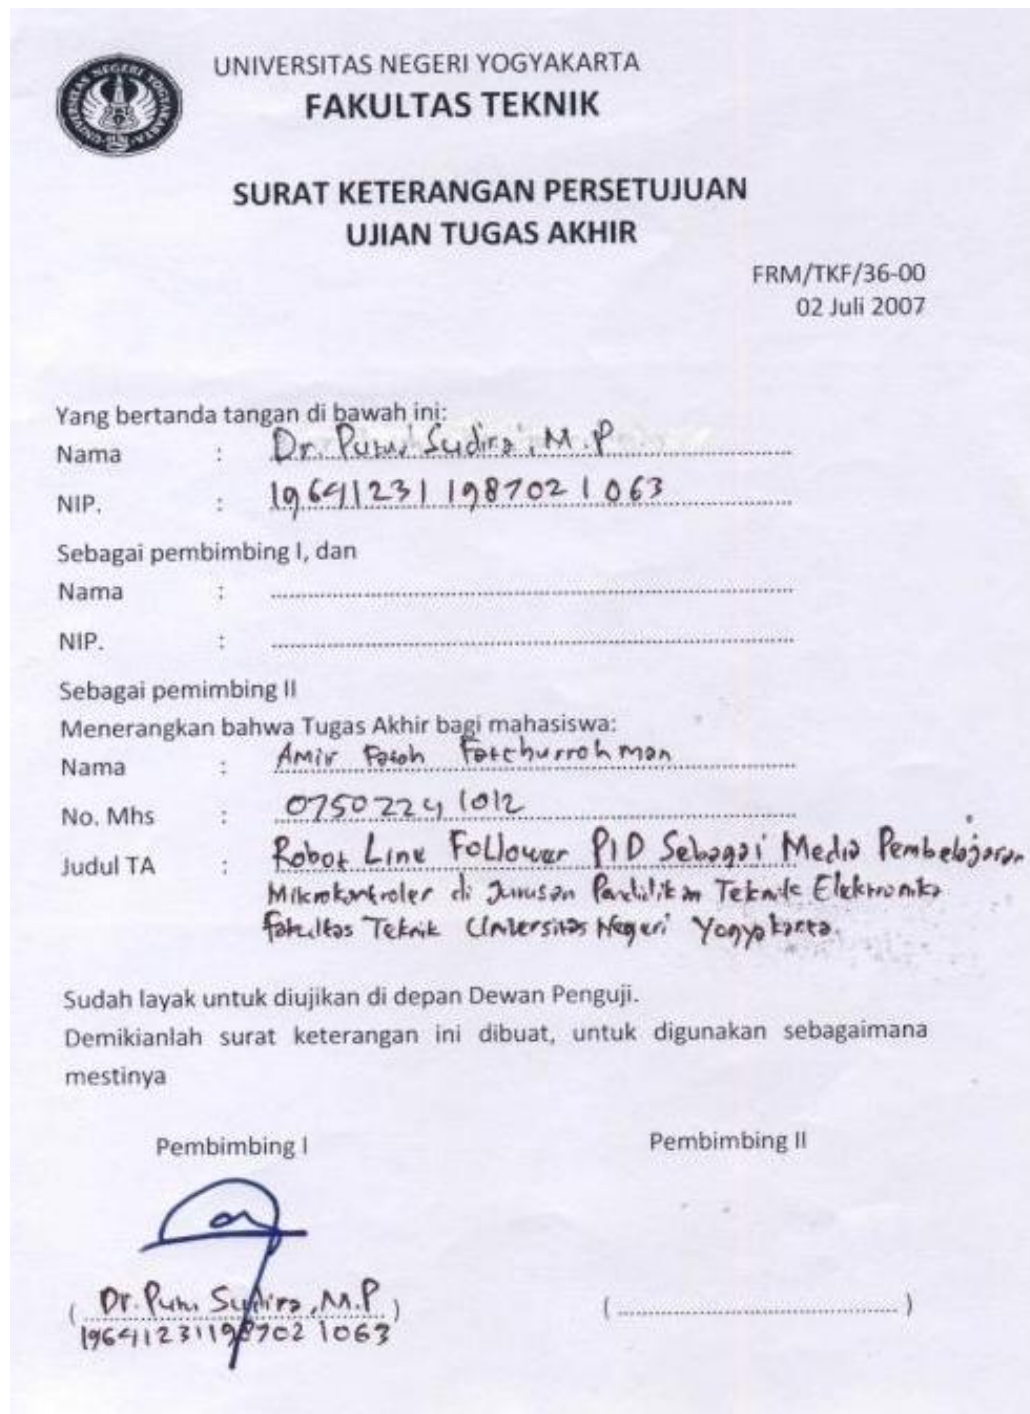 UNIVERSITAS NEGERI YOGYAKARTA
UNIVERSITAS NEGERI YOGYAKARTA
FAKULTAS TEKNIK
SURAT KETERANGAN PERSETUJUAN
UJIAN TUGAS AKHIR
FRM/TKF/36-00
02 Juli 2007
Yang bertanda tangan di bawah ini:
Nama : Dr. Putu Sudira, M.P
NIP. : 19641231 198702 1 063
Sebagai pembimbing I, dan
Nama :
NIP. :
Sebagai pemimbing II
Menerangkan bahwa Tugas Akhir bagi mahasiswa:
Nama : Amir Fatchurrohman
No. Mhs : 07502241012
Judul TA : Robot Line Follower PID Sebagai Media Pembelajaran
Mikrokontroler di Jurusan Pendidikan Teknik Elektronika
Fakultas Teknik Universitas Negeri Yogyakarta.
Sudah layak untuk diujikan di depan Dewan Penguji.
Demikianlah surat keterangan ini dibuat, untuk digunakan sebagaimana
mestinya
Pembimbing I Pembimbing II
( Dr. Putu Sudira, M.P ) ( )
19641231198702 1063